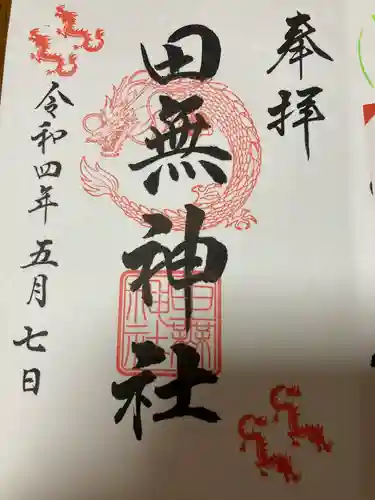 奉拝
田無神社
令和四年五月七日
田無神社